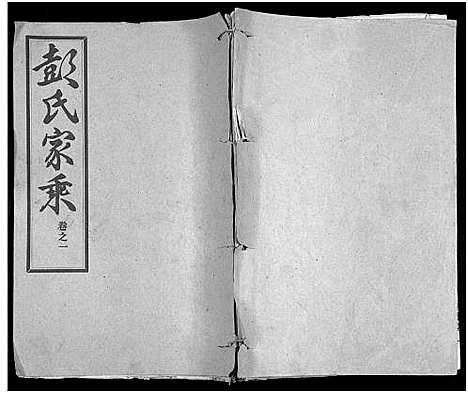 彭氏家乘
卷之二